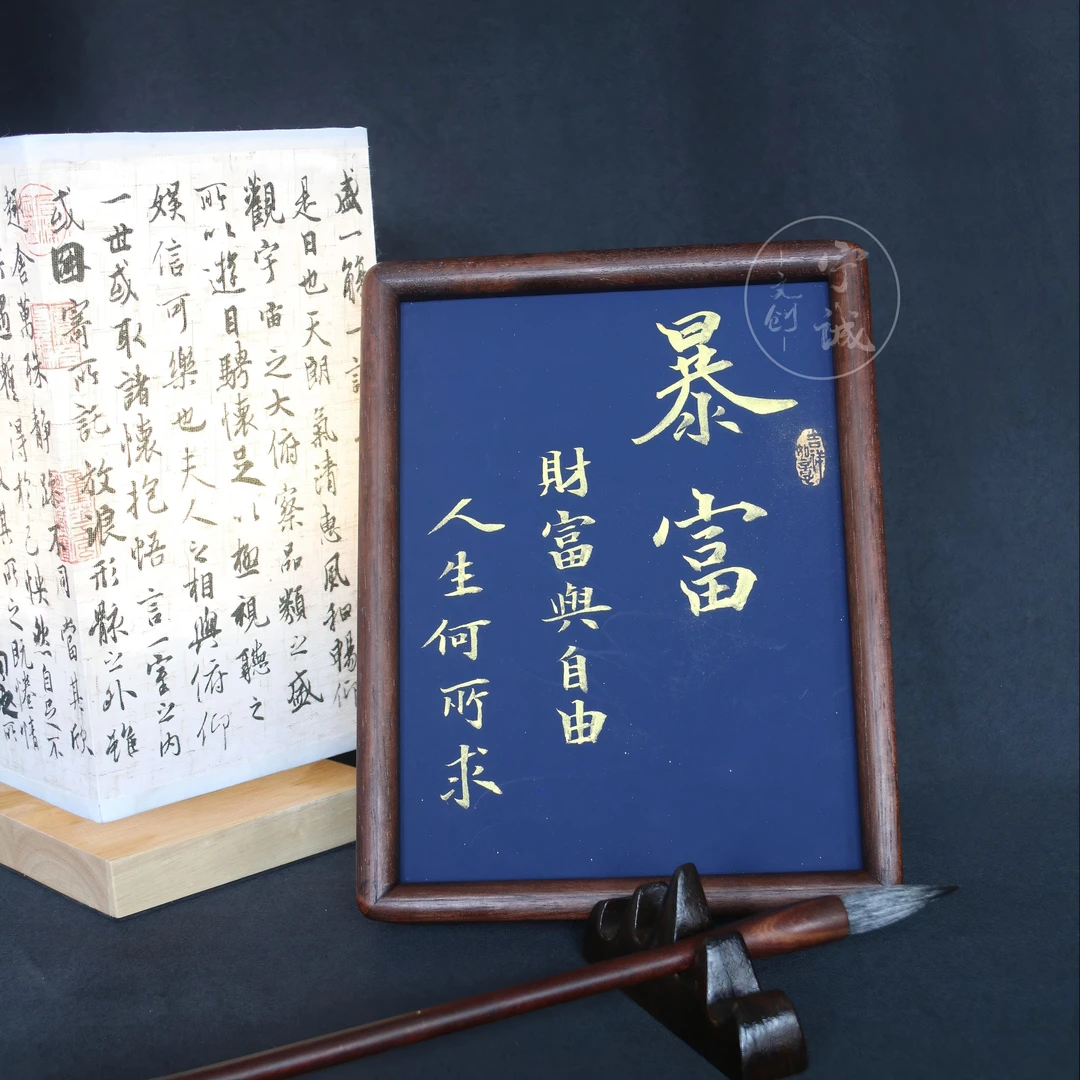 暴富
財富與自由
人生何所求
宁誠
文创
盛一觴一
是日也天朗氣清惠風和暢仰
觀宇宙之大俯察品類之盛
所以遊目騁懷足以極視聽之
娛信可樂也夫人之相與俯仰
一世或取諸懷抱悟言一室之內
或因寄所託放浪形骸之外雖
趣舍萬殊靜躁不同當其欣